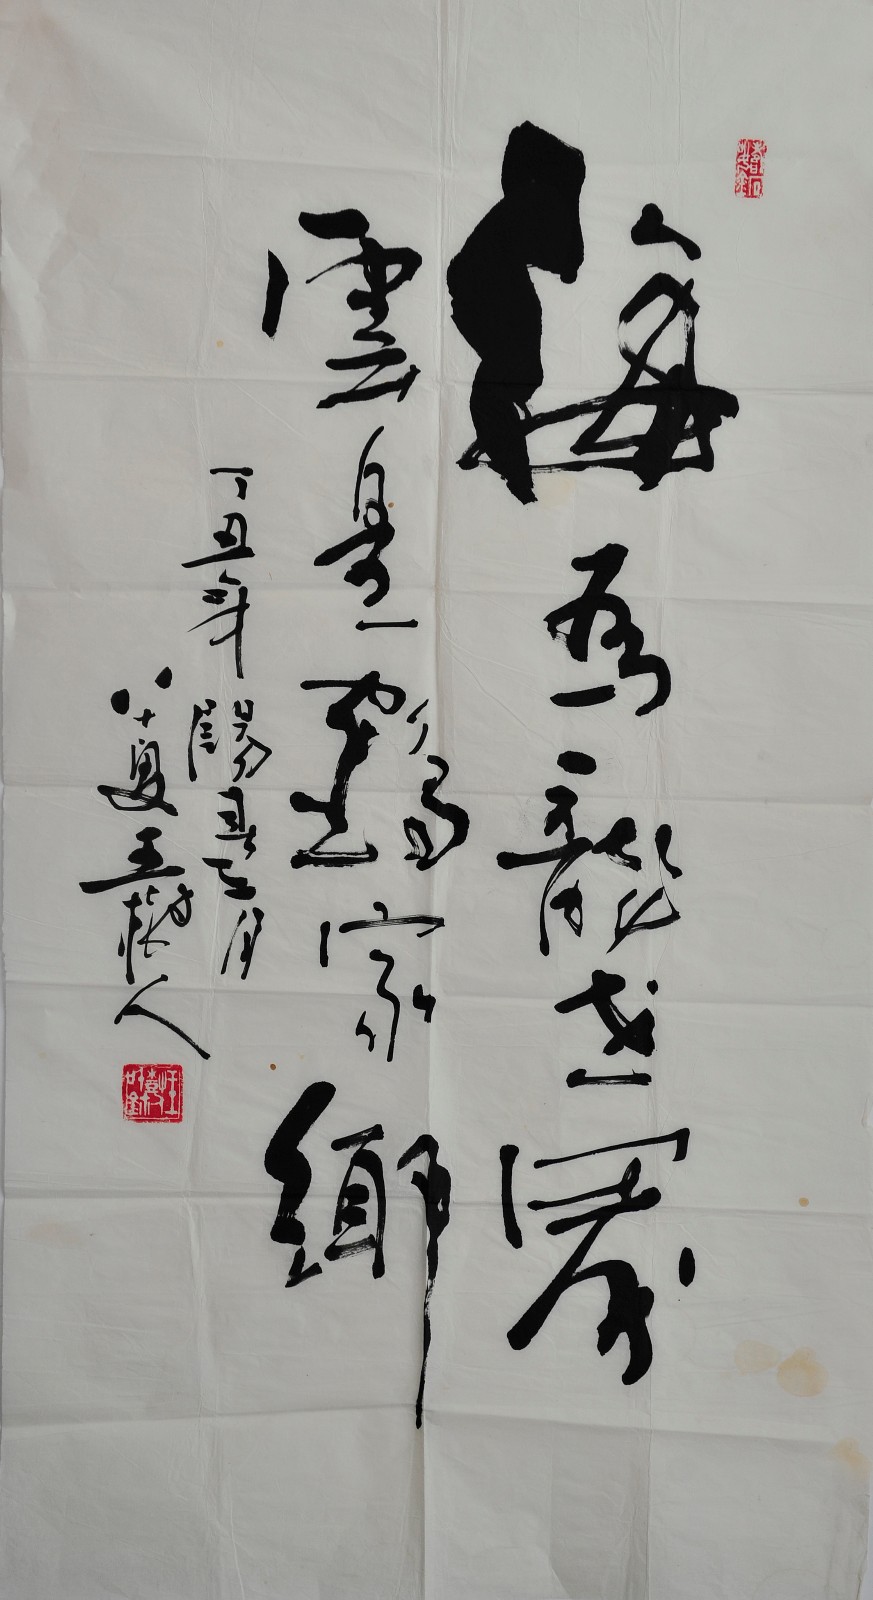 海為龍世界
雲是鶴家鄉
丁丑年陽春三月
八十叟王樹人